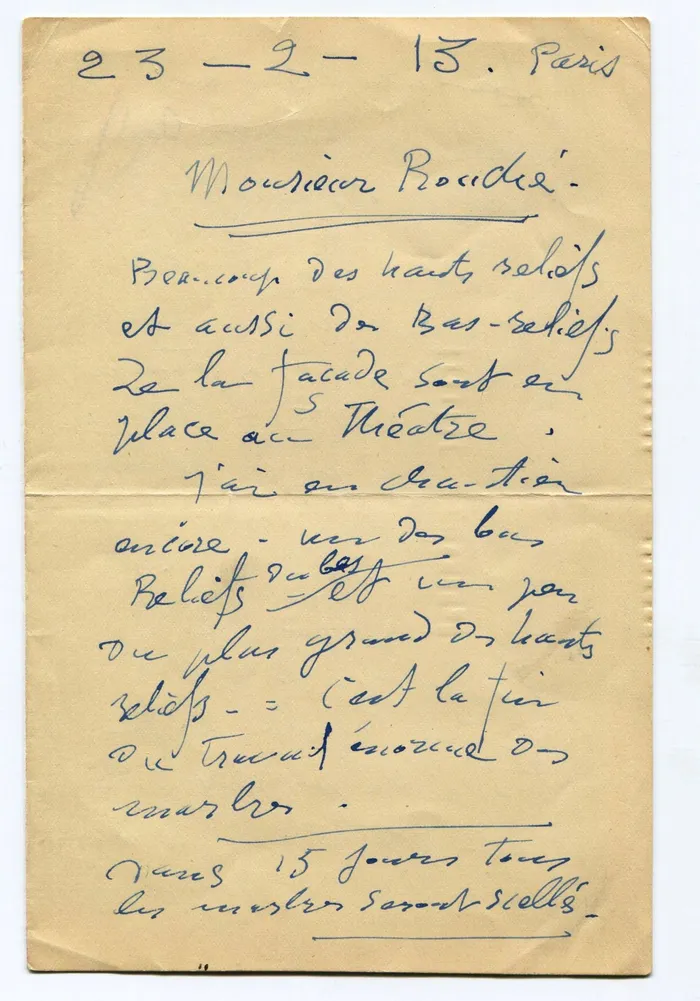 23 – 2 – 13. Paris
Monsieur Rouché.
Beaucoup des hauts reliefs
et aussi des Bas-reliefs
De la façade sont en
place au Théâtre.
j'ai en chantier
encore – un des bas
Reliefs du bas et un peu
du plus grand des hauts
reliefs – = C'est la fin
du travail énorme des
marbres.
Dans 15 jours tous
les marbres seront scellés –